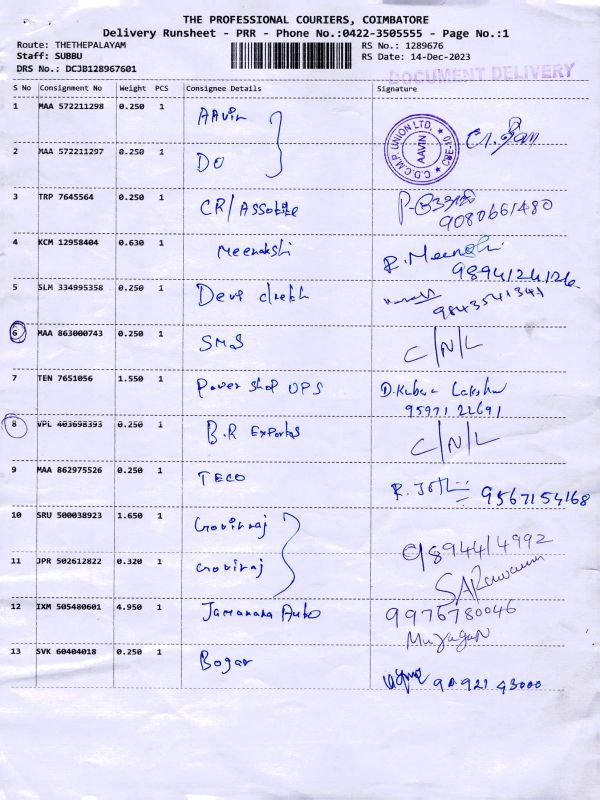 THE PROFESSIONAL COURIERS, COIMBATORE
Delivery Runsheet - PRR - Phone No.:0422-3505555 - Page No.:1
Route: THETHEPALAYAM RS No.: 1289676
Staff: SUBBU RS Date: 14-Dec-2023
DRS No.: DCJB128967601
DOCUMENT DELIVERY
S No Consignment No Weight PCS Consignee Details Signature
1 MAA 572211298 0.250 1 AAvin
C.D.C.M.P. UNION LTD. AAVIN CBE-10
2 MAA 572211297 0.250 1 DO
3 TRP 7645564 0.250 1 CR/
9080661480
4 KCM 12958404 0.630 1 Meenakshi R. Meenakshi
9894126126
5 SLM 334995358 0.250 1 Devi
9843541341
6 MAA 863000743 0.250 1 SMS C/N/L
7 TEN 7651056 1.550 1 Power Shop UPS D.
95971 22691
8 VPL 403698393 0.250 1 B.R Exports C/N/L
9 MAA 862975526 0.250 1 TECO R. Jothi 9567154168
10 SRU 500038923 1.650 1 Govinraj
9894414992
11 JPR 502612822 0.320 1 Govinraj
12 IXM 505480601 4.950 1 Auto 9976780046
Murugan
13 SVK 60404018 0.250 1 Bogar 90921 43000